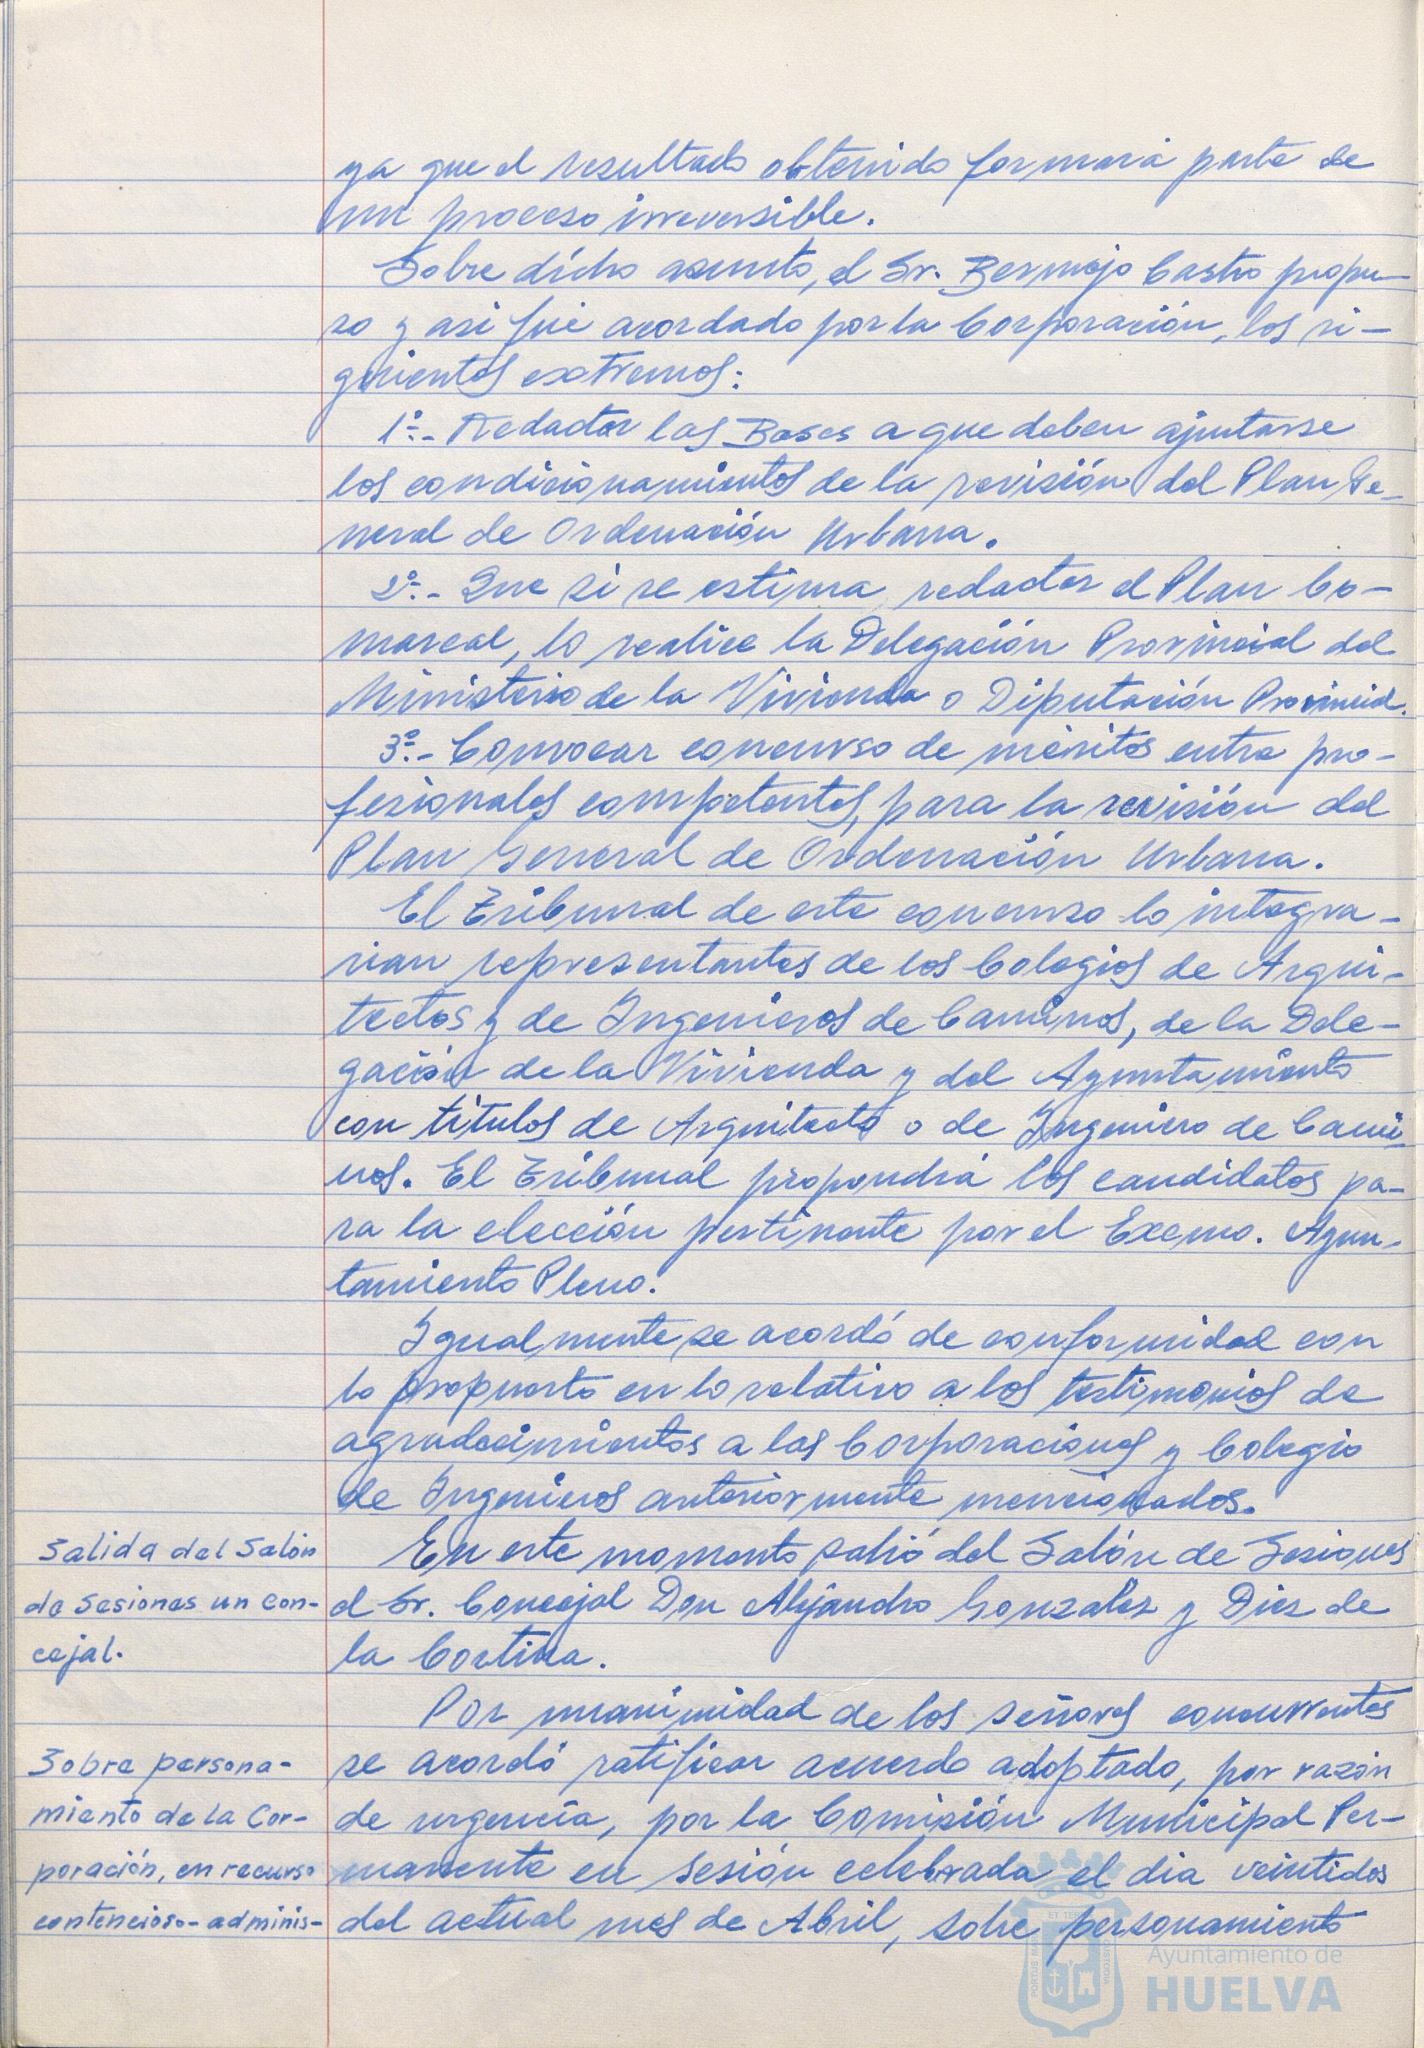 ya que el resultado obtenido formará parte de
un proceso irreversible.
Sobre dicho asunto, el Sr. Bermejo Castro propu-
so y asi fué acordado por la Corporación, los si-
guientes extremos:
1º.- Redactar las Bases a que deben ajustarse
los condicionamientos de la revisión del Plan Ge-
neral de Ordenación Urbana.
2º.- Que si se estima redactar el Plan Co-
marcal, lo realice la Delegación Provincial del
Ministerio de la Vivienda o Diputación Provincial.
3º.- Convocar concurso de méritos entre pro-
fesionales competentes, para la revisión del
Plan General de Ordenación Urbana.
El Tribunal de este concurso lo integra-
rian representantes de los Colegios de Arqui-
tectos y de Ingenieros de Caminos, de la Dele-
gación de la Vivienda y del Ayuntamiento
con titulos de Arquitecto o de Ingeniero de Cami-
nos. El Tribunal propondrá los candidatos pa-
ra la elección pertinente por el Excmo. Ayun-
tamiento Pleno.
Igualmente se acordó de conformidad con
lo propuesto en lo relativo a los testimonios de
agradecimientos a las Corporaciones y Colegio
de Ingenieros anteriormente mencionados.
Salida del Salón
de Sesiones un con-
cejal.
En este momento salió del Salón de Sesiones
el Sr. Concejal Don Alejandro Gonzalez y Diez de
la Cortina.
Sobre persona-
miento de la Cor-
poración, en recurso
contencioso-adminis-
Por unanimidad de los señores concurrentes
se acordó ratificar acuerdo adoptado, por razón
de urgencia, por la Comisión Municipal Per-
manente en sesión celebrada el dia veintidos
del actual mes de Abril, sobre personamiento
Ayuntamiento de
HUELVA